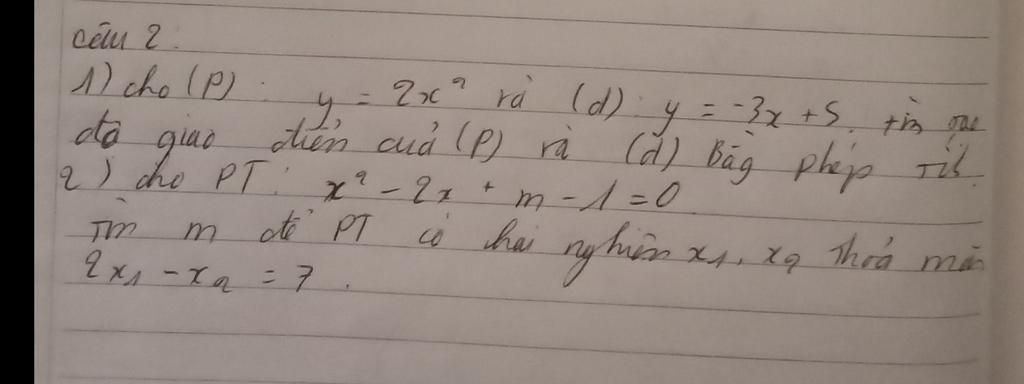 Câu 2.
1) cho (P): y = 2x² và (d): y = -3x + 5. tìm toạ
độ giao điểm của (P) và (d) Bằg phép Tíh.
2) cho PT: x² - 2x + m - 1 = 0
Tìm m để PT có hai nghiệm x₁, x₂ Thoả mãn
2x₁ - x₂ = 7.